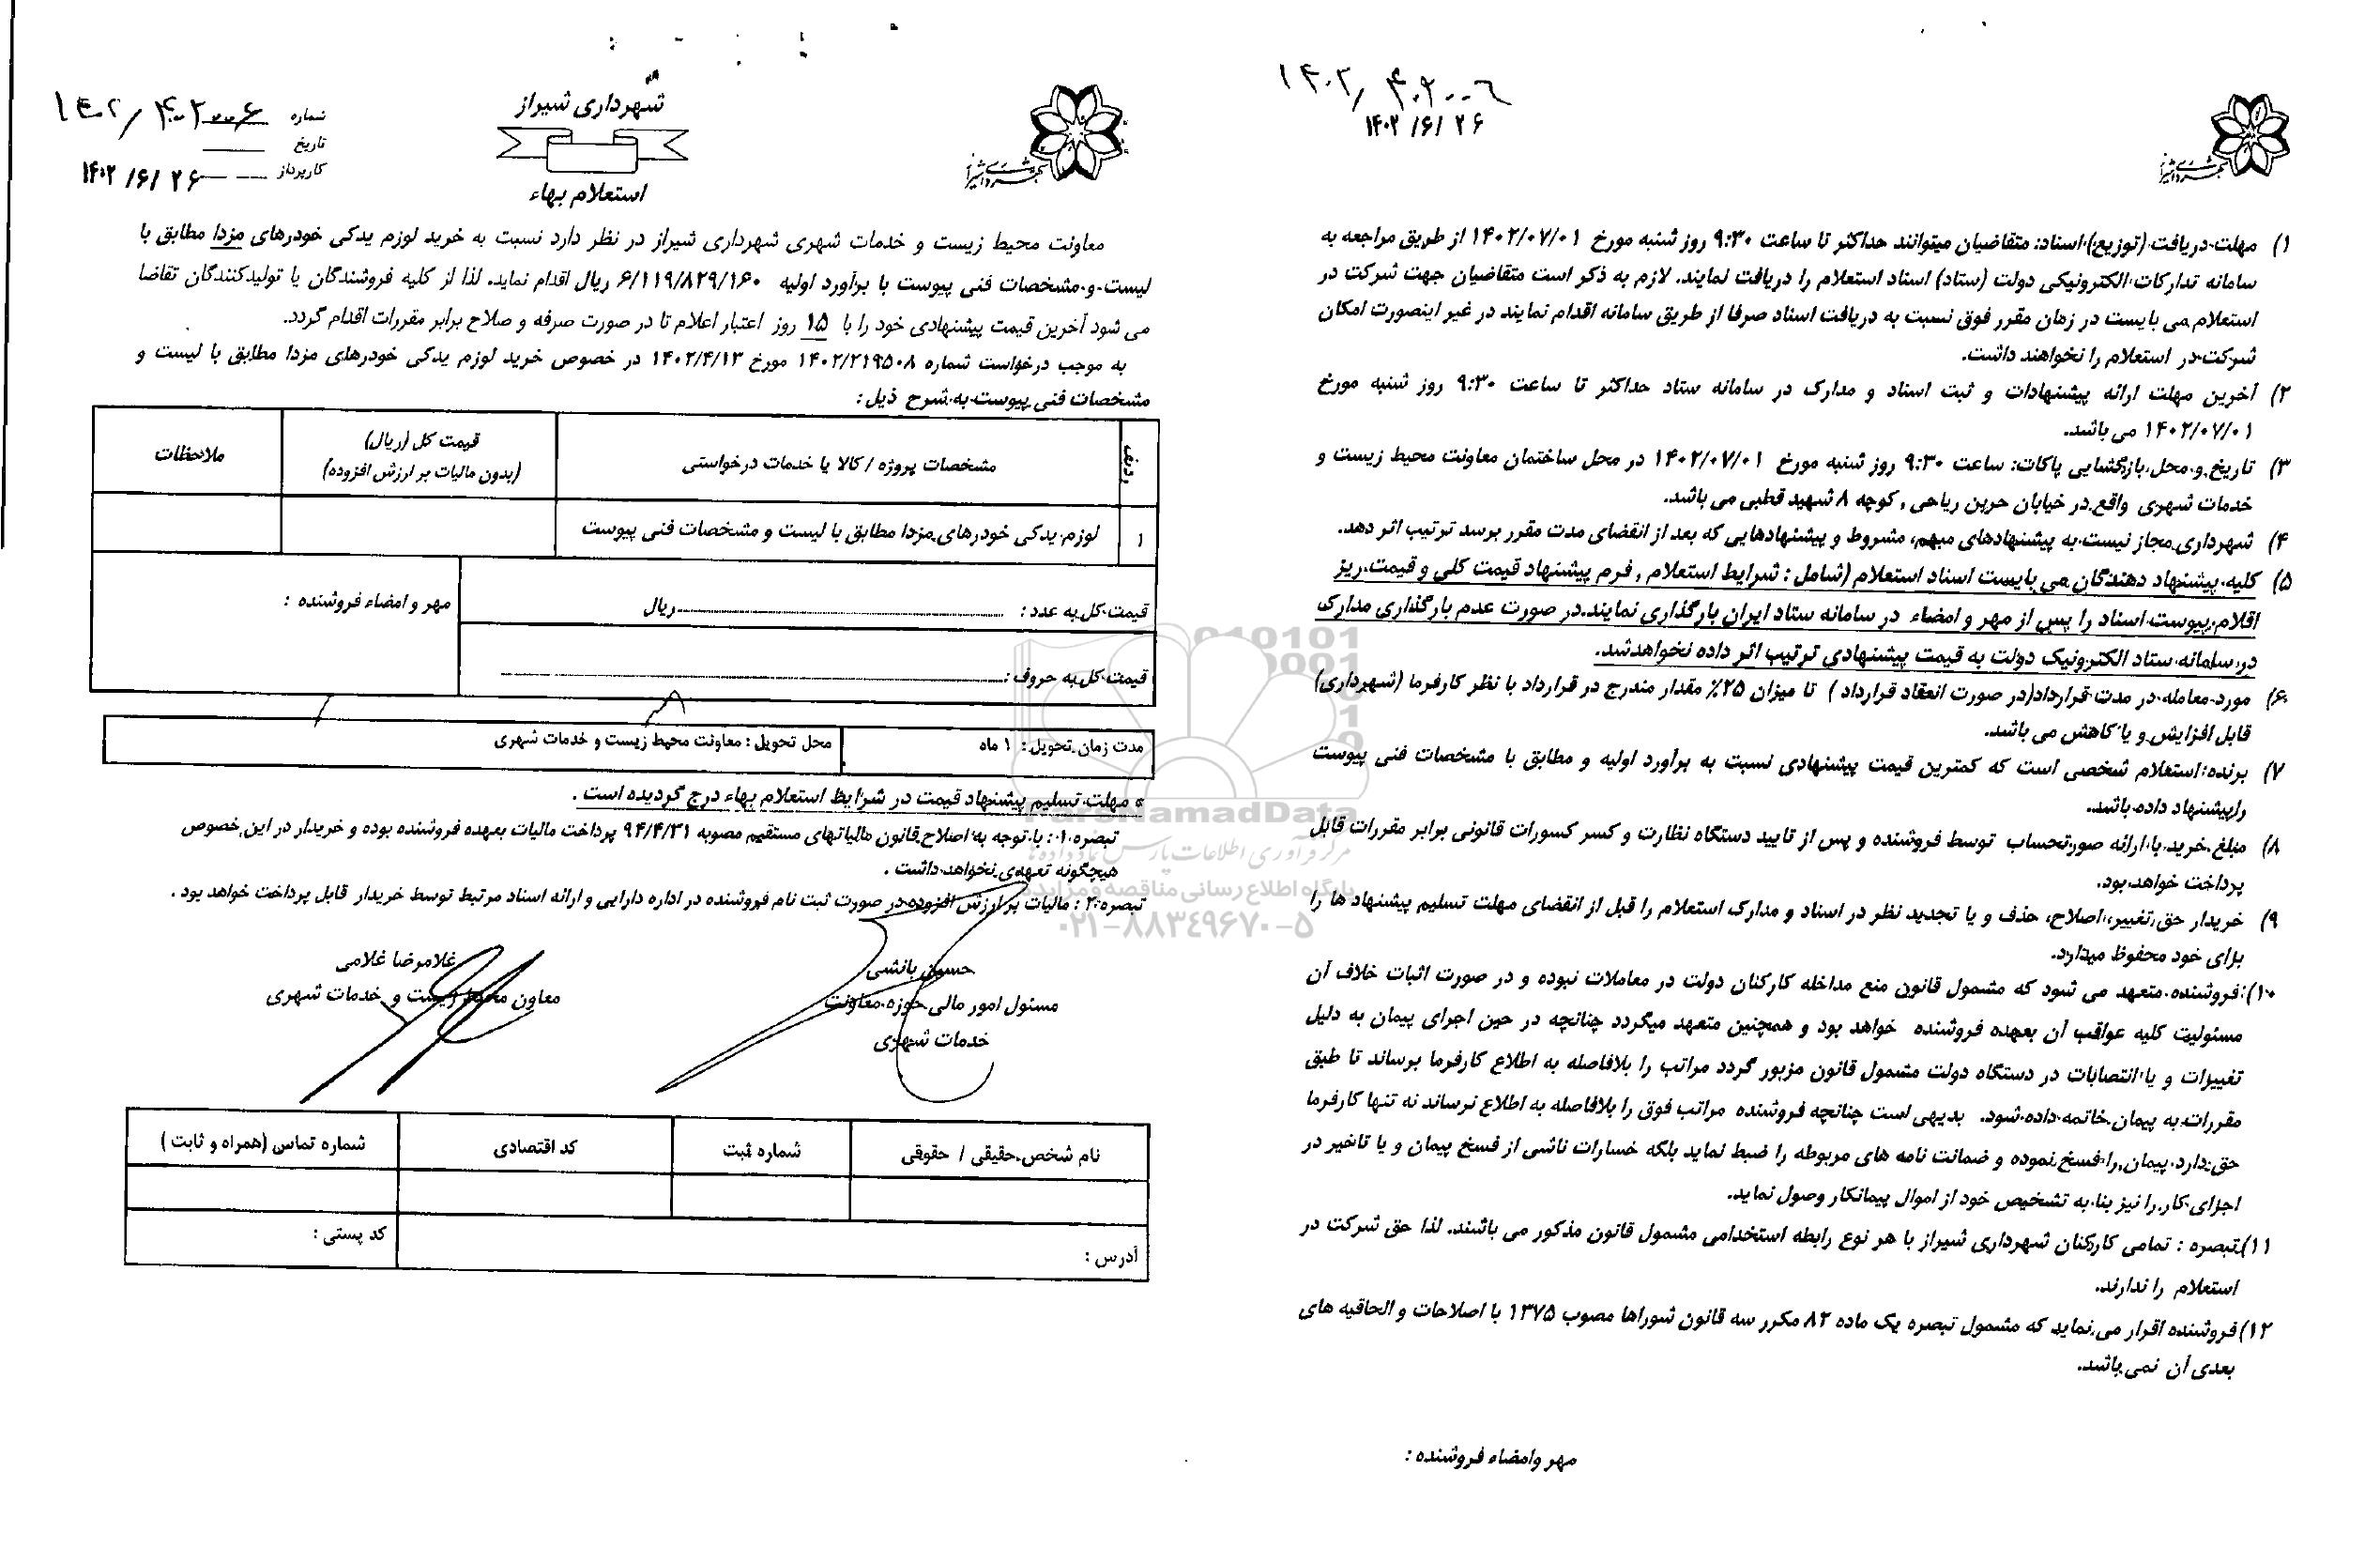 شهرداری شیراز
استعلام بهاء
شماره ۱۴۰۲/۴۰۲۰۰۶
تاریخ
کارپرداز ۱۴۰۲/۶/۲۶
معاونت محیط زیست و خدمات شهری شهرداری شیراز در نظر دارد نسبت به خرید لوزم یدکی خودرهای مزدا مطابق با
لیست و مشخصات فنی پیوست با برآورد اولیه ۶/۱۱۹/۸۲۹/۱۶۰ ریال اقدام نماید. لذا از کلیه فروشندگان یا تولیدکنندگان تقاضا
می شود آخرین قیمت پیشنهادی خود را با ۱۵ روز اعتبار اعلام تا در صورت صرفه و صلاح برابر مقررات اقدام گردد.
به موجب درخواست شماره ۱۴۰۲/۲۱۹۵۰۸ مورخ ۱۴۰۲/۴/۱۳ در خصوص خرید لوزم یدکی خودرهای مزدا مطابق با لیست و
مشخصات فنی پیوست به شرح ذیل:
ردیف
مشخصات پروژه / کالا یا خدمات درخواستی
قیمت کل (ریال)
(بدون مالیات بر ارزش افزوده)
ملاحظات
۱
لوزم یدکی خودرهای مزدا مطابق با لیست و مشخصات فنی پیوست
قیمت کل به عدد : ریال
مهر و امضاء فروشنده :
قیمت کل به حروف :
مدت زمان تحویل : ۱ ماه
محل تحویل : معاونت محیط زیست و خدمات شهری
* مهلت تسلیم پیشنهاد قیمت در شرایط استعلام بهاء درج گردیده است .
تبصره ۱ : با توجه به اصلاح قانون مالیاتهای مستقیم مصوبه ۹۴/۴/۳۱ پرداخت مالیات بعهده فروشنده بوده و خریدار در این خصوص
هیچگونه تعهدی نخواهد داشت .
تبصره ۲ : مالیات بر ارزش افزوده در صورت ثبت نام فروشنده در اداره دارایی و ارائه اسناد مرتبط توسط خریدار قابل پرداخت خواهد بود .
حسین بانشی
مسئول امور مالی حوزه معاونت
خدمات شهری
غلامرضا غلامی
معاون محیط زیست و خدمات شهری
نام شخص حقیقی / حقوقی
شماره ثبت
کد اقتصادی
شماره تماس (همراه و ثابت )
آدرس :
کد پستی :
۱۴۰۲/۴۰۲۰۰۶
۱۴۰۲/۶/۲۶
۱) مهلت دریافت (توزیع) اسناد: متقاضیان میتوانند حداکثر تا ساعت ۹:۳۰ روز شنبه مورخ ۱۴۰۲/۰۷/۰۱ از طریق مراجعه به
سامانه تدارکات الکترونیکی دولت (ستاد) اسناد استعلام را دریافت نمایند. لازم به ذکر است متقاضیان جهت شرکت در
استعلام می بایست در زمان مقرر فوق نسبت به دریافت اسناد صرفا از طریق سامانه اقدام نمایند در غیر اینصورت امکان
شرکت در استعلام را نخواهند داشت.
۲) آخرین مهلت ارائه پیشنهادات و ثبت اسناد و مدارک در سامانه ستاد حداکثر تا ساعت ۹:۳۰ روز شنبه مورخ
۱۴۰۲/۰۷/۰۱ می باشد.
۳) تاریخ و محل بازگشایی پاکات: ساعت ۹:۳۰ روز شنبه مورخ ۱۴۰۲/۰۷/۰۱ در محل ساختمان معاونت محیط زیست و
خدمات شهری واقع در خیابان حربن ریاحی , کوچه ۸ شهید قطبی می باشد.
۴) شهرداری مجاز نیست به پیشنهادهای مبهم، مشروط و پیشنهادهایی که بعد از انقضای مدت مقرر برسد ترتیب اثر دهد.
۵) کلیه پیشنهاد دهندگان می بایست اسناد استعلام (شامل : شرایط استعلام , فرم پیشنهاد قیمت کلی و قیمت ریز
اقلام پیوست اسناد را پس از مهر و امضاء در سامانه ستاد ایران بارگذاری نمایند.در صورت عدم بارگذاری مدارک
در سامانه ستاد الکترونیک دولت به قیمت پیشنهادی ترتیب اثر داده نخواهدشد.
۶) مورد معامله در مدت قرارداد(در صورت انعقاد قرارداد ) تا میزان ۲۵٪ مقدار مندرج در قرارداد با نظر کارفرما (شهرداری)
قابل افزایش و یا کاهش می باشد.
۷) برنده استعلام شخصی است که کمترین قیمت پیشنهادی نسبت به برآورد اولیه و مطابق با مشخصات فنی پیوست
راپیشنهاد داده باشد.
۸) مبلغ خرید با ارائه صورتحساب توسط فروشنده و پس از تایید دستگاه نظارت و کسر کسورات قانونی برابر مقررات قابل
پرداخت خواهد بود.
۹) خریدار حق تغییر، اصلاح، حذف و یا تجدید نظر در اسناد و مدارک استعلام را قبل از انقضای مهلت تسلیم پیشنهاد ها را
برای خود محفوظ میدارد.
۱۰) فروشنده متعهد می شود که مشمول قانون منع مداخله کارکنان دولت در معاملات نبوده و در صورت اثبات خلاف آن
مسئولیت کلیه عواقب آن بعهده فروشنده خواهد بود و همچنین متعهد میگردد چنانچه در حین اجرای پیمان به دلیل
تغییرات و یا انتصابات در دستگاه دولت مشمول قانون مزبور گردد مراتب را بلافاصله به اطلاع کارفرما برساند تا طبق
مقررات به پیمان خاتمه داده شود. بدیهی است چنانچه فروشنده مراتب فوق را بلافاصله به اطلاع نرساند نه تنها کارفرما
حق دارد پیمان را فسخ نموده و ضمانت نامه های مربوطه را ضبط نماید بلکه خسارات ناشی از فسخ پیمان و یا تاخیر در
اجرای کار را نیز بنا به تشخیص خود از اموال پیمانکار وصول نماید.
۱۱) تبصره : تمامی کارکنان شهرداری شیراز با هر نوع رابطه استخدامی مشمول قانون مذکور می باشند. لذا حق شرکت در
استعلام را ندارند.
۱۲) فروشنده اقرار می نماید که مشمول تبصره یک ماده ۸۲ مکرر سه قانون شوراها مصوب ۱۳۷۵ با اصلاحات و الحاقیه های
بعدی آن نمی باشد.
مهر وامضاء فروشنده :
ParsNamadData
مرکز فرآوری اطلاعات پارس نماد داده ها
پایگاه اطلاع رسانی مناقصه و مزایده
۰۲۱-۸۸۳۴۹۶۷۰-۵